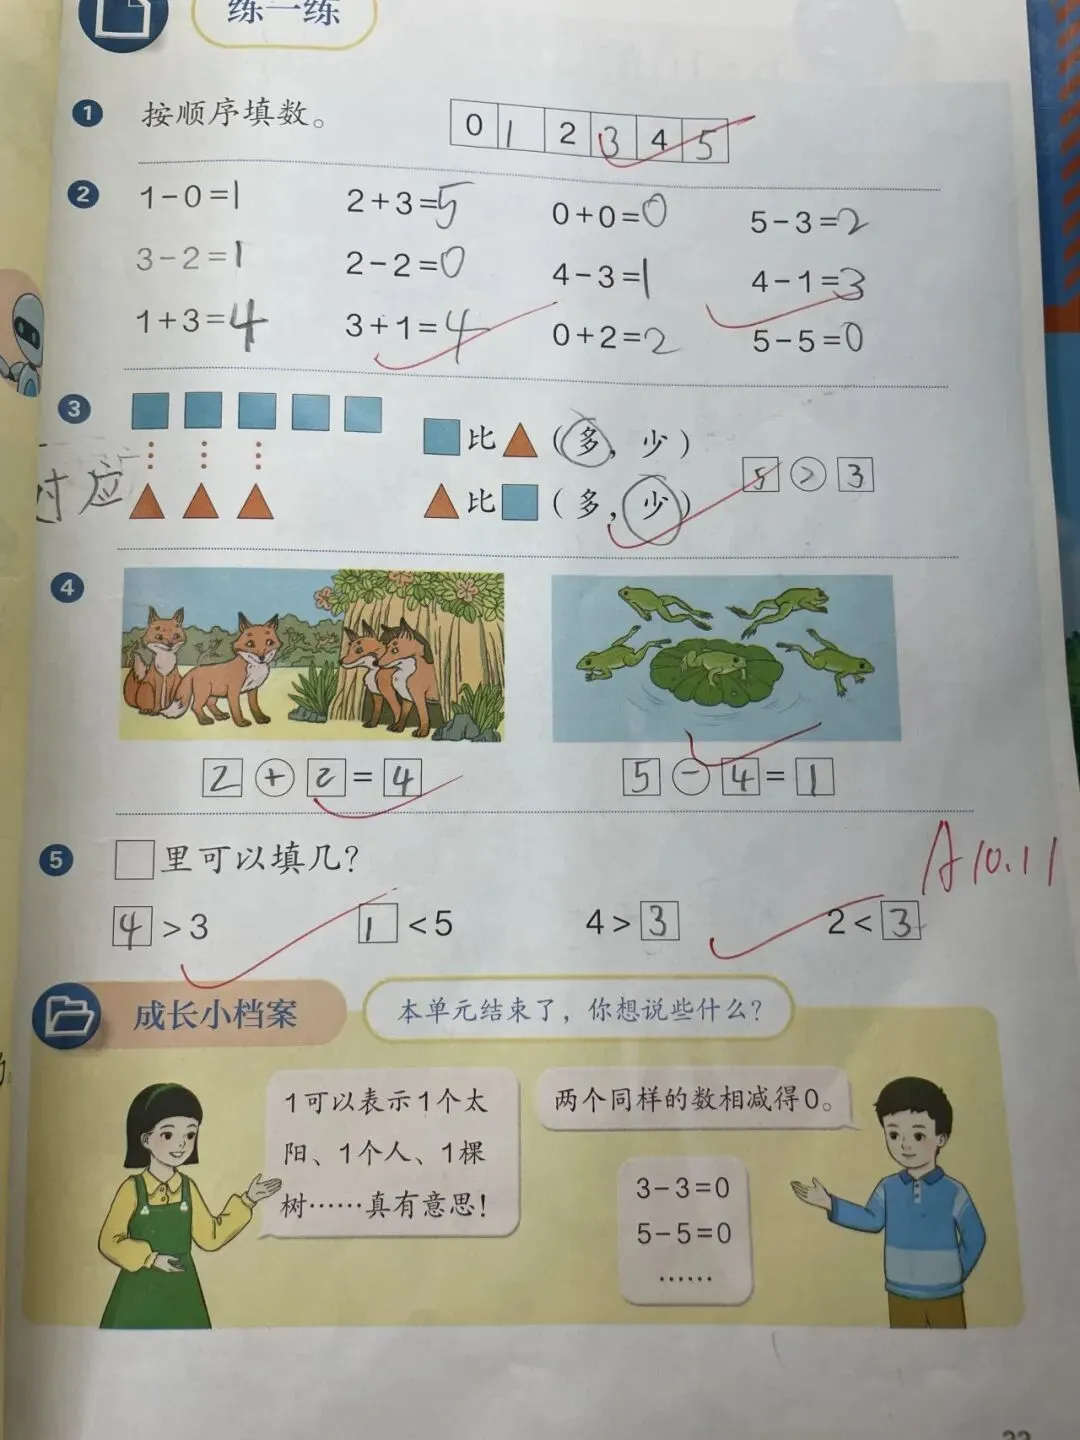 练一练
1 按顺序填数。 0 1 2 3 4 5
2 1-0=1 2+3=5 0+0=0 5-3=2
3-2=1 2-2=0 4-3=1 4-1=3
1+3=4 3+1=4 0+2=2 5-5=0
3 比 (多, 少)
对应 比 (多, 少) 5 > 3
4
2 + 2 = 4 5 - 4 = 1
5 里可以填几?
4 > 3 1 < 5 4 > 3 2 < 3
A 10.11
成长小档案 本单元结束了,你想说些什么?
1可以表示1个太
阳、1个人、1棵
树……真有意思!
两个同样的数相减得0。
3-3=0
5-5=0
……